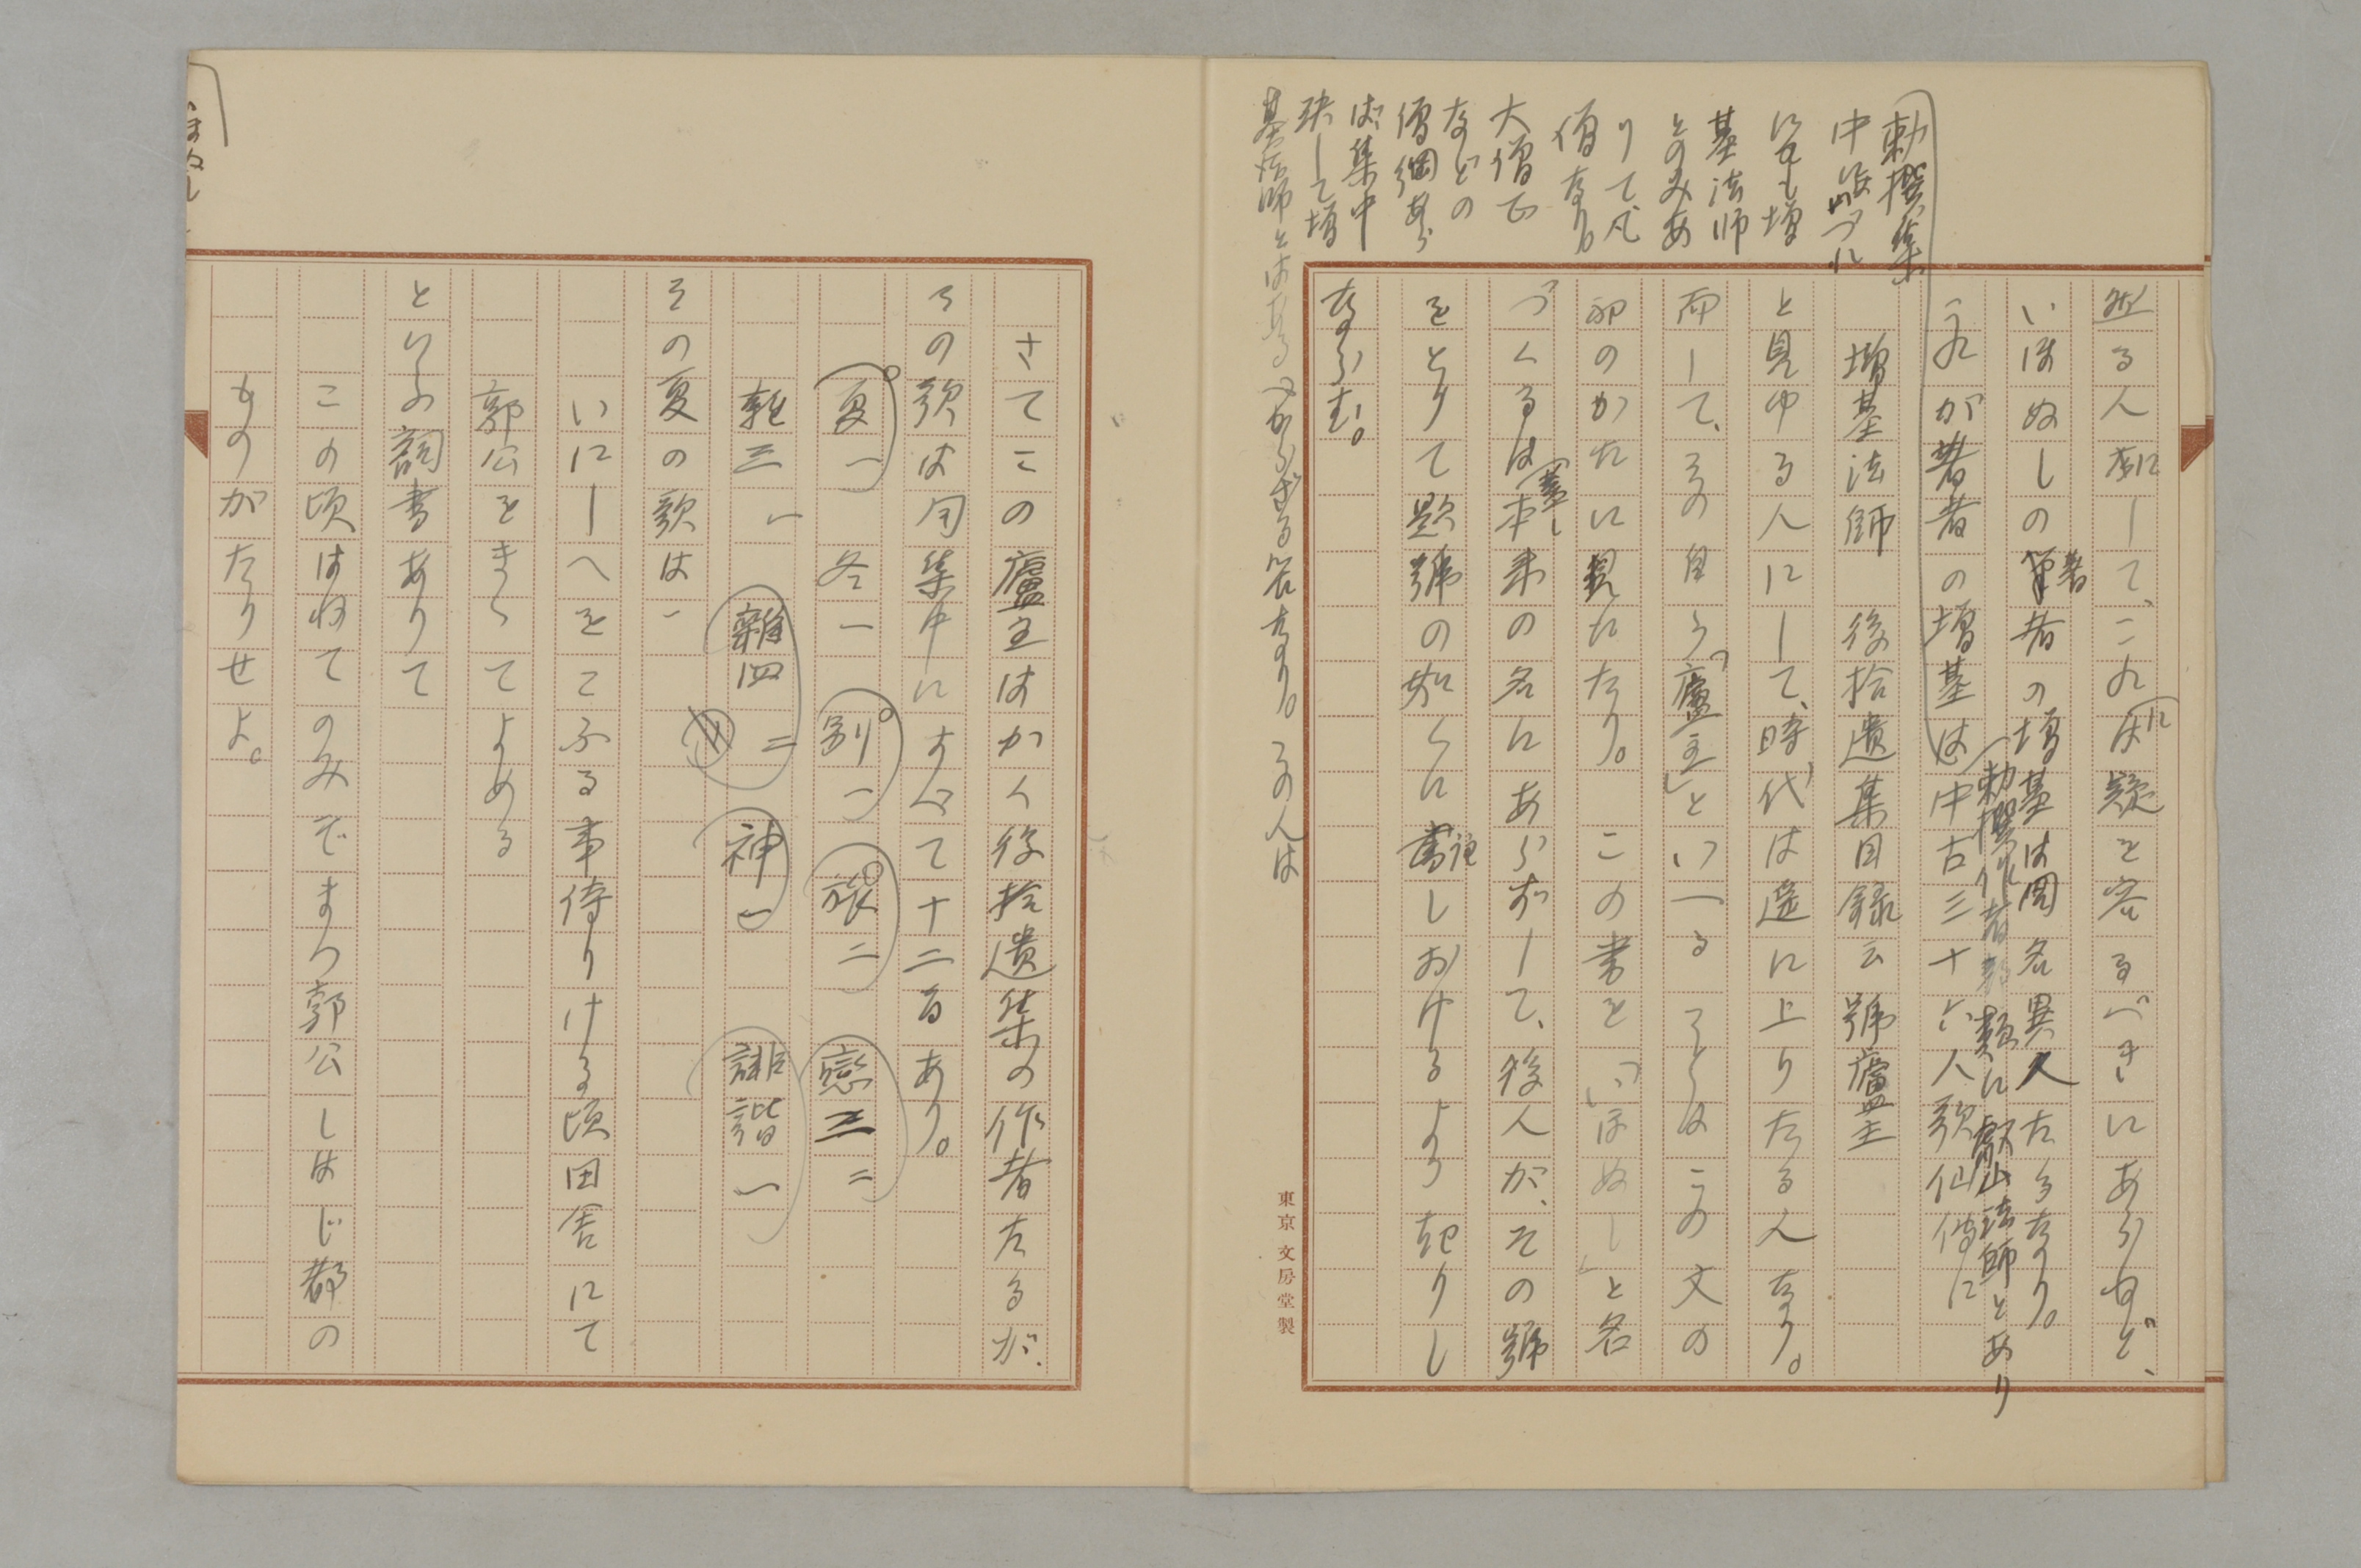 勅撰集
中いづれ
にも増
基法師
とのみあ
りて、凡
僧なり
大僧正
などの
僧綱あら
ば集中
決して増
基法師とはある
べからざる筈なり。その人は
る人にして、これは疑を容るべきにあらねど、
いほぬしの著者の増基は同名異人たるなり。
勅撰作者部類に叡山法師とあり
これが著者の増基は中古三十六人歌仙傳に
増基法師 後拾遺集目録云號廬主
と見ゆる人にして、時代は遥に上りたる人なり。
而して、その自ら「廬主」といへることはこの文の
初のかたに見えたり。この書を「いほぬし」と名
づくるは蓋し本来の名にあらずして、後人が、その號
をとりて題號の如くに書しおけるより起りし
ならむ。
東京 文房堂製
さてこの廬主はかく後拾遺集の作者たるが、
その歌は同集中にすべて十二首あり。
夏一 冬一 別一 旅二 戀二
雜三、一 雜四 二 神一 誹諧一
その夏の歌は、
いにしへをこふる事侍りける頃田舎にて
郭公をきゝてよめる
といふ詞書ありて
この頃はねてのみぞまつ郭公しばじ都の
ものがたりせよ。